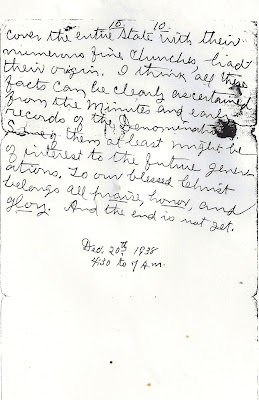 10 10
cover the entire State with their
numerous fine Churches, had
their origin. I think all these
facts can be clearly ascertained
from the Minutes and early
records of the Denomination
Some of them at least might be
of interest to the future gener-
ations. To our blessed Christ
belongs all praise, honor, and
glory. And the end is not yet.
Dec. 20th 1938
4:30 to 7 A.M.